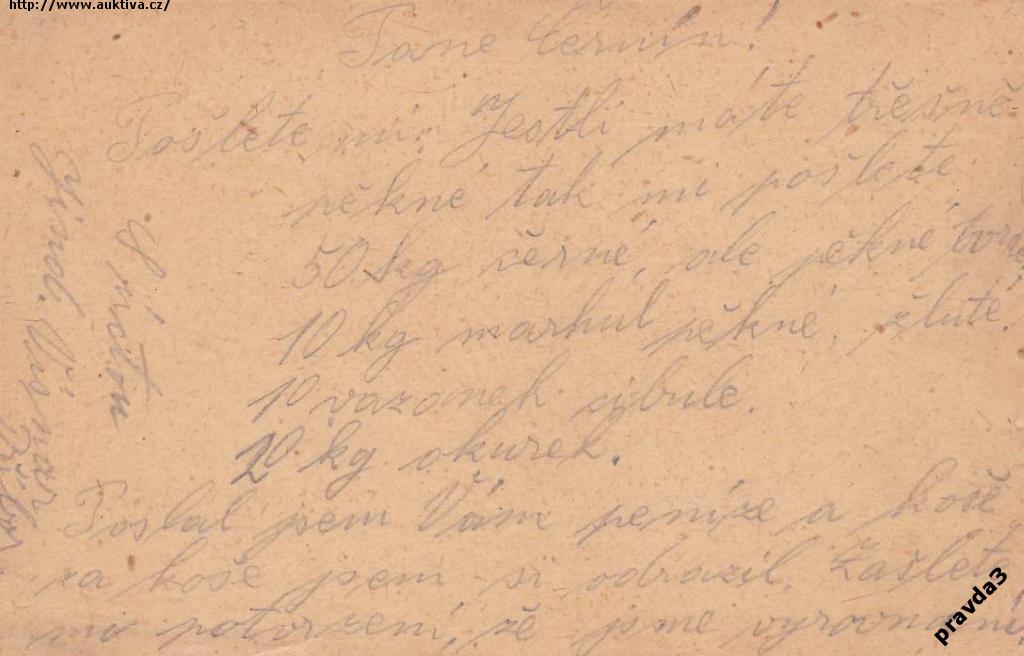 http://www.auktiva.cz/
Pane Černín!
Pošlete mi. Jestli máte třešně
pěkné tak mi pošlete
50 kg černé, ale pěkné tvrdé
10 kg marhul pěkné, žluté.
10 vazanek cybule.
20 kg okurek.
Poslal jsem Vám peníze a koše
za koše jsem si odrazil. Zašlete
mi potvrzení, že jsme vyrovnaní
S úctou
pravda3